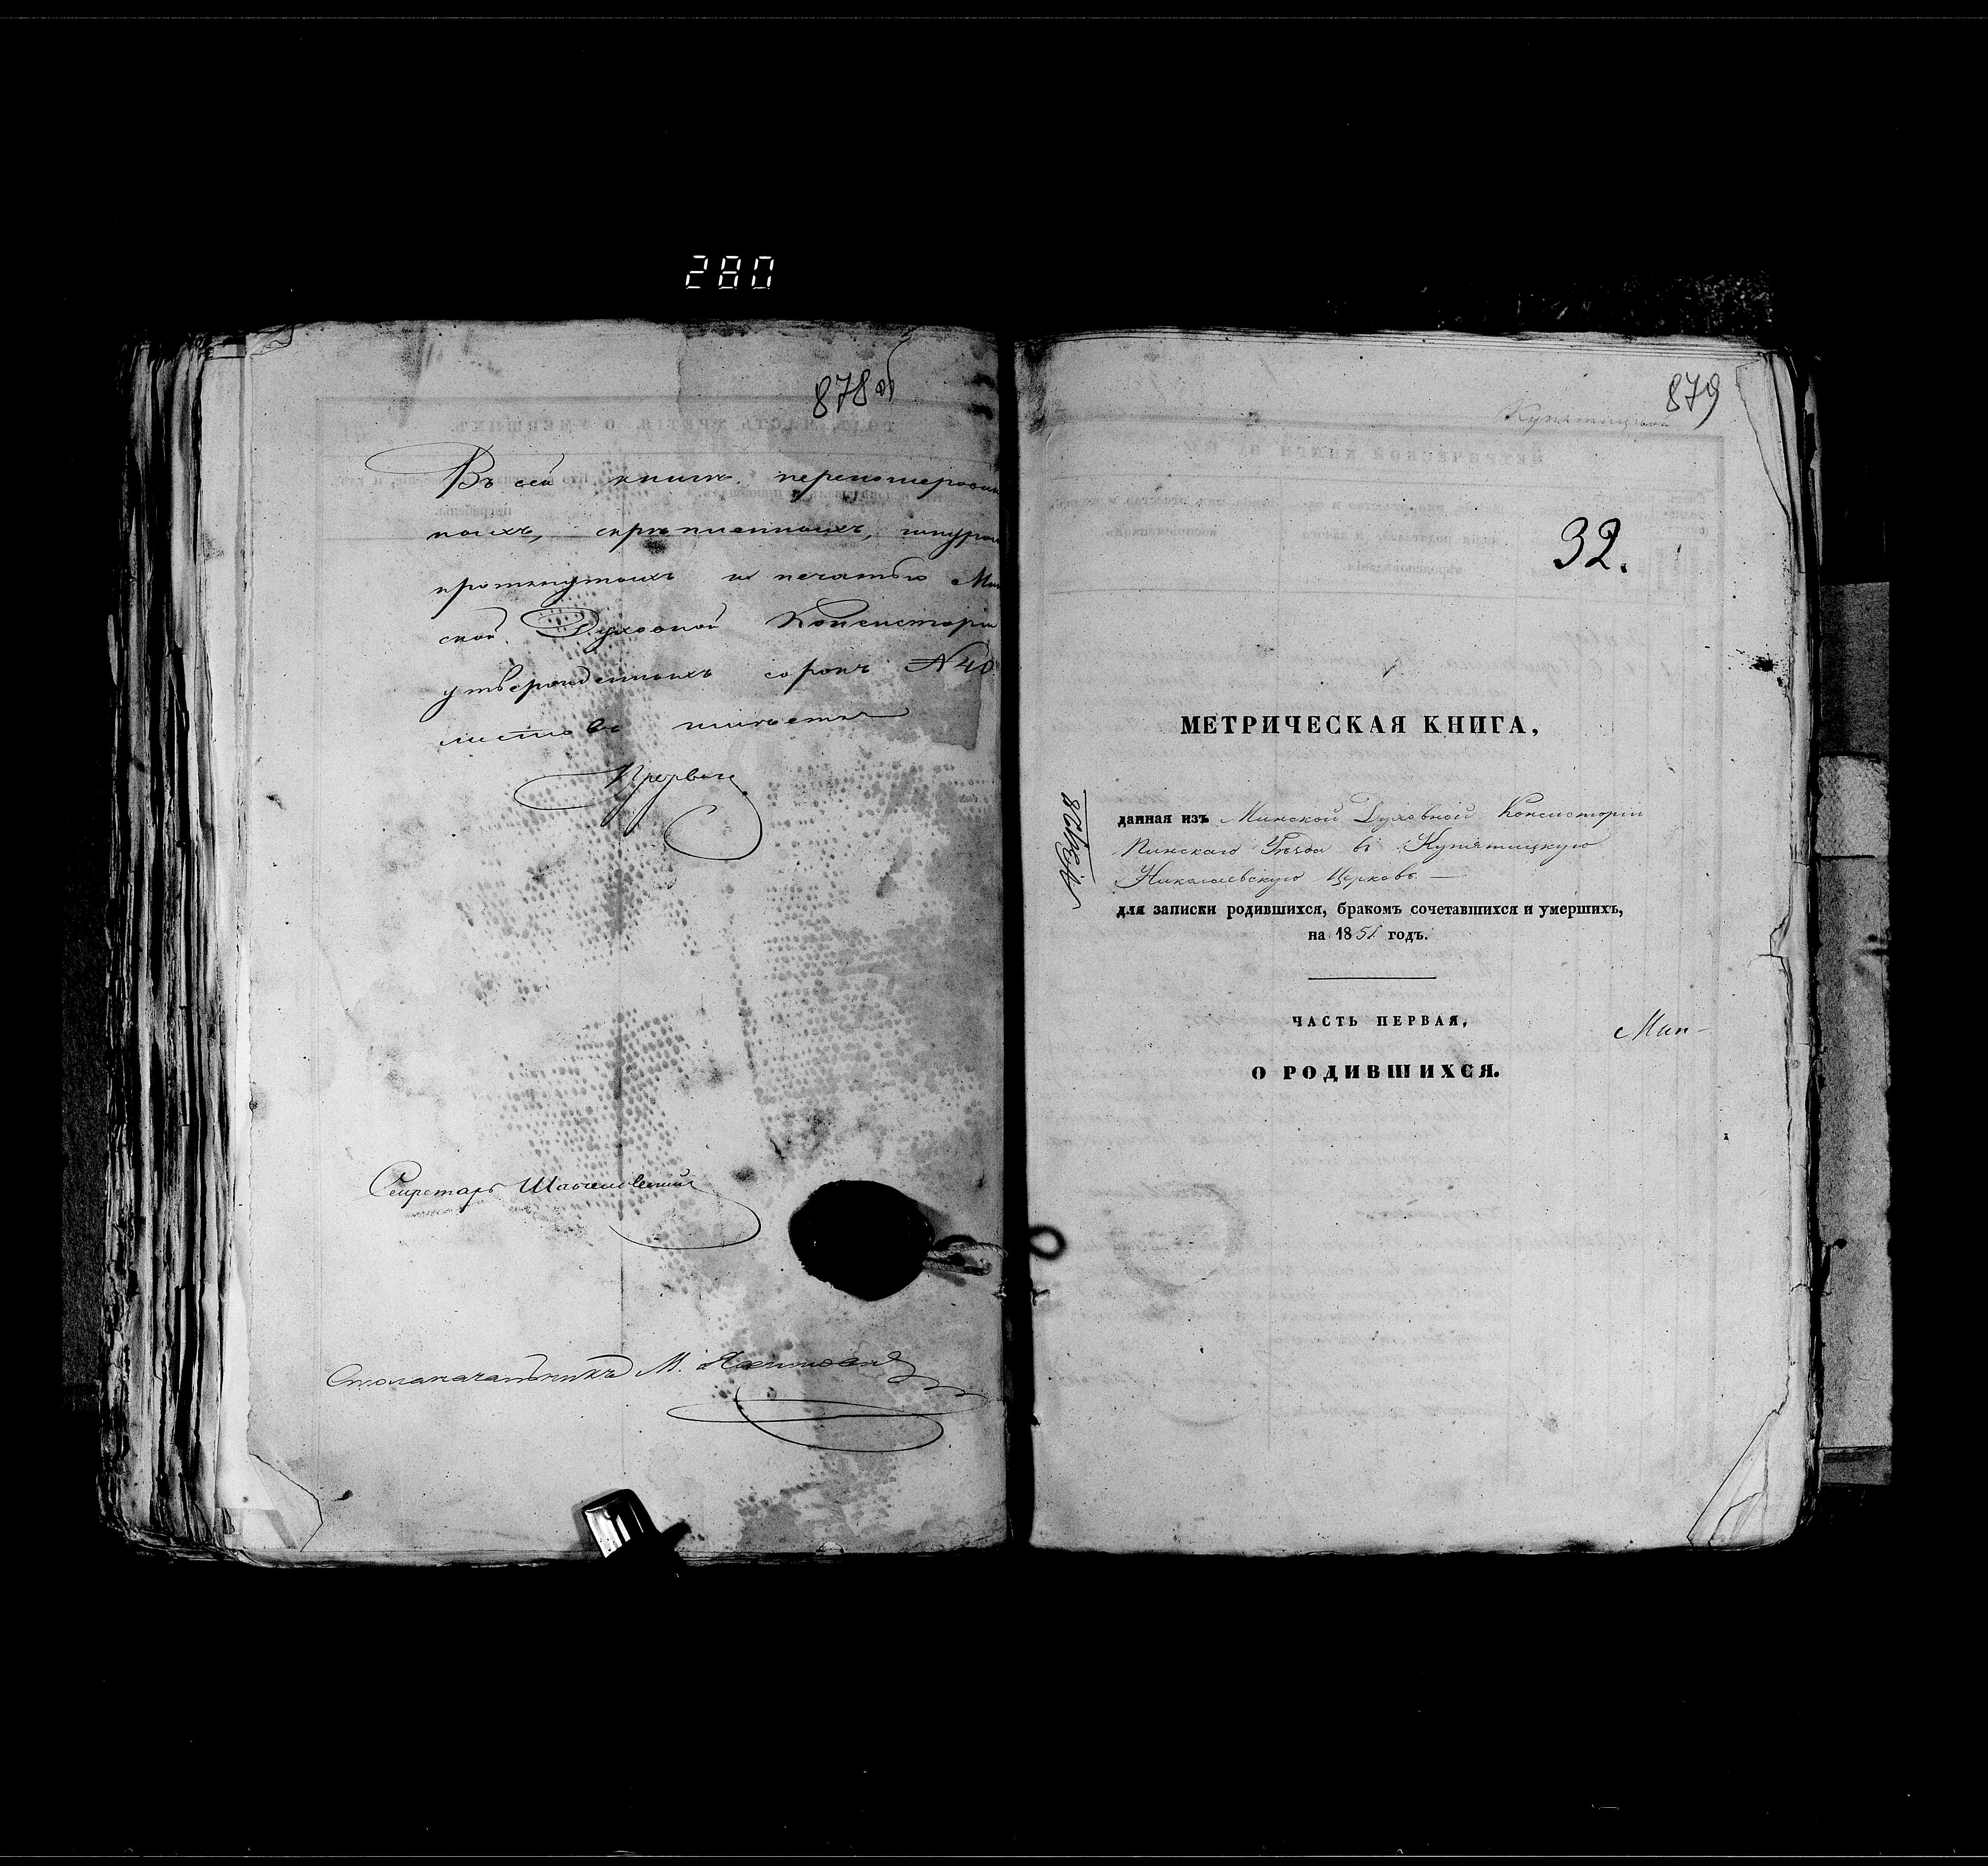 280
878 об
Въ сей книгѣ перенумерован
ныхъ, скрѣпленныхъ, шнуром
протянутыхъ и печатью Мин
ской Духовной Консисторіи
утвержденныхъ сорокъ N 40
листовъ имѣется
Секретарь
Столоначальникъ М.
879
32.
МЕТРИЧЕСКАЯ КНИГА,
данная изъ Минской Духовной Консисторіи
Пинскаго Уѣзда въ Купятицкую
Николаевскую Церковь —
для записки родившихся, бракомъ сочетавшихся и умершихъ,
на 1851 годъ.
ЧАСТЬ ПЕРВАЯ,
Мин-
О РОДИВШИХСЯ.